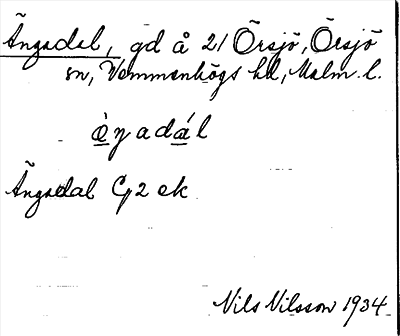 Ängadal, gd å 21 Örsjö, Örsjö
sn, Vemmenhögs hd, Malm. l.
è̱ŋadá̱l
Ängadal G2 ek
Nils Nilsson 1934